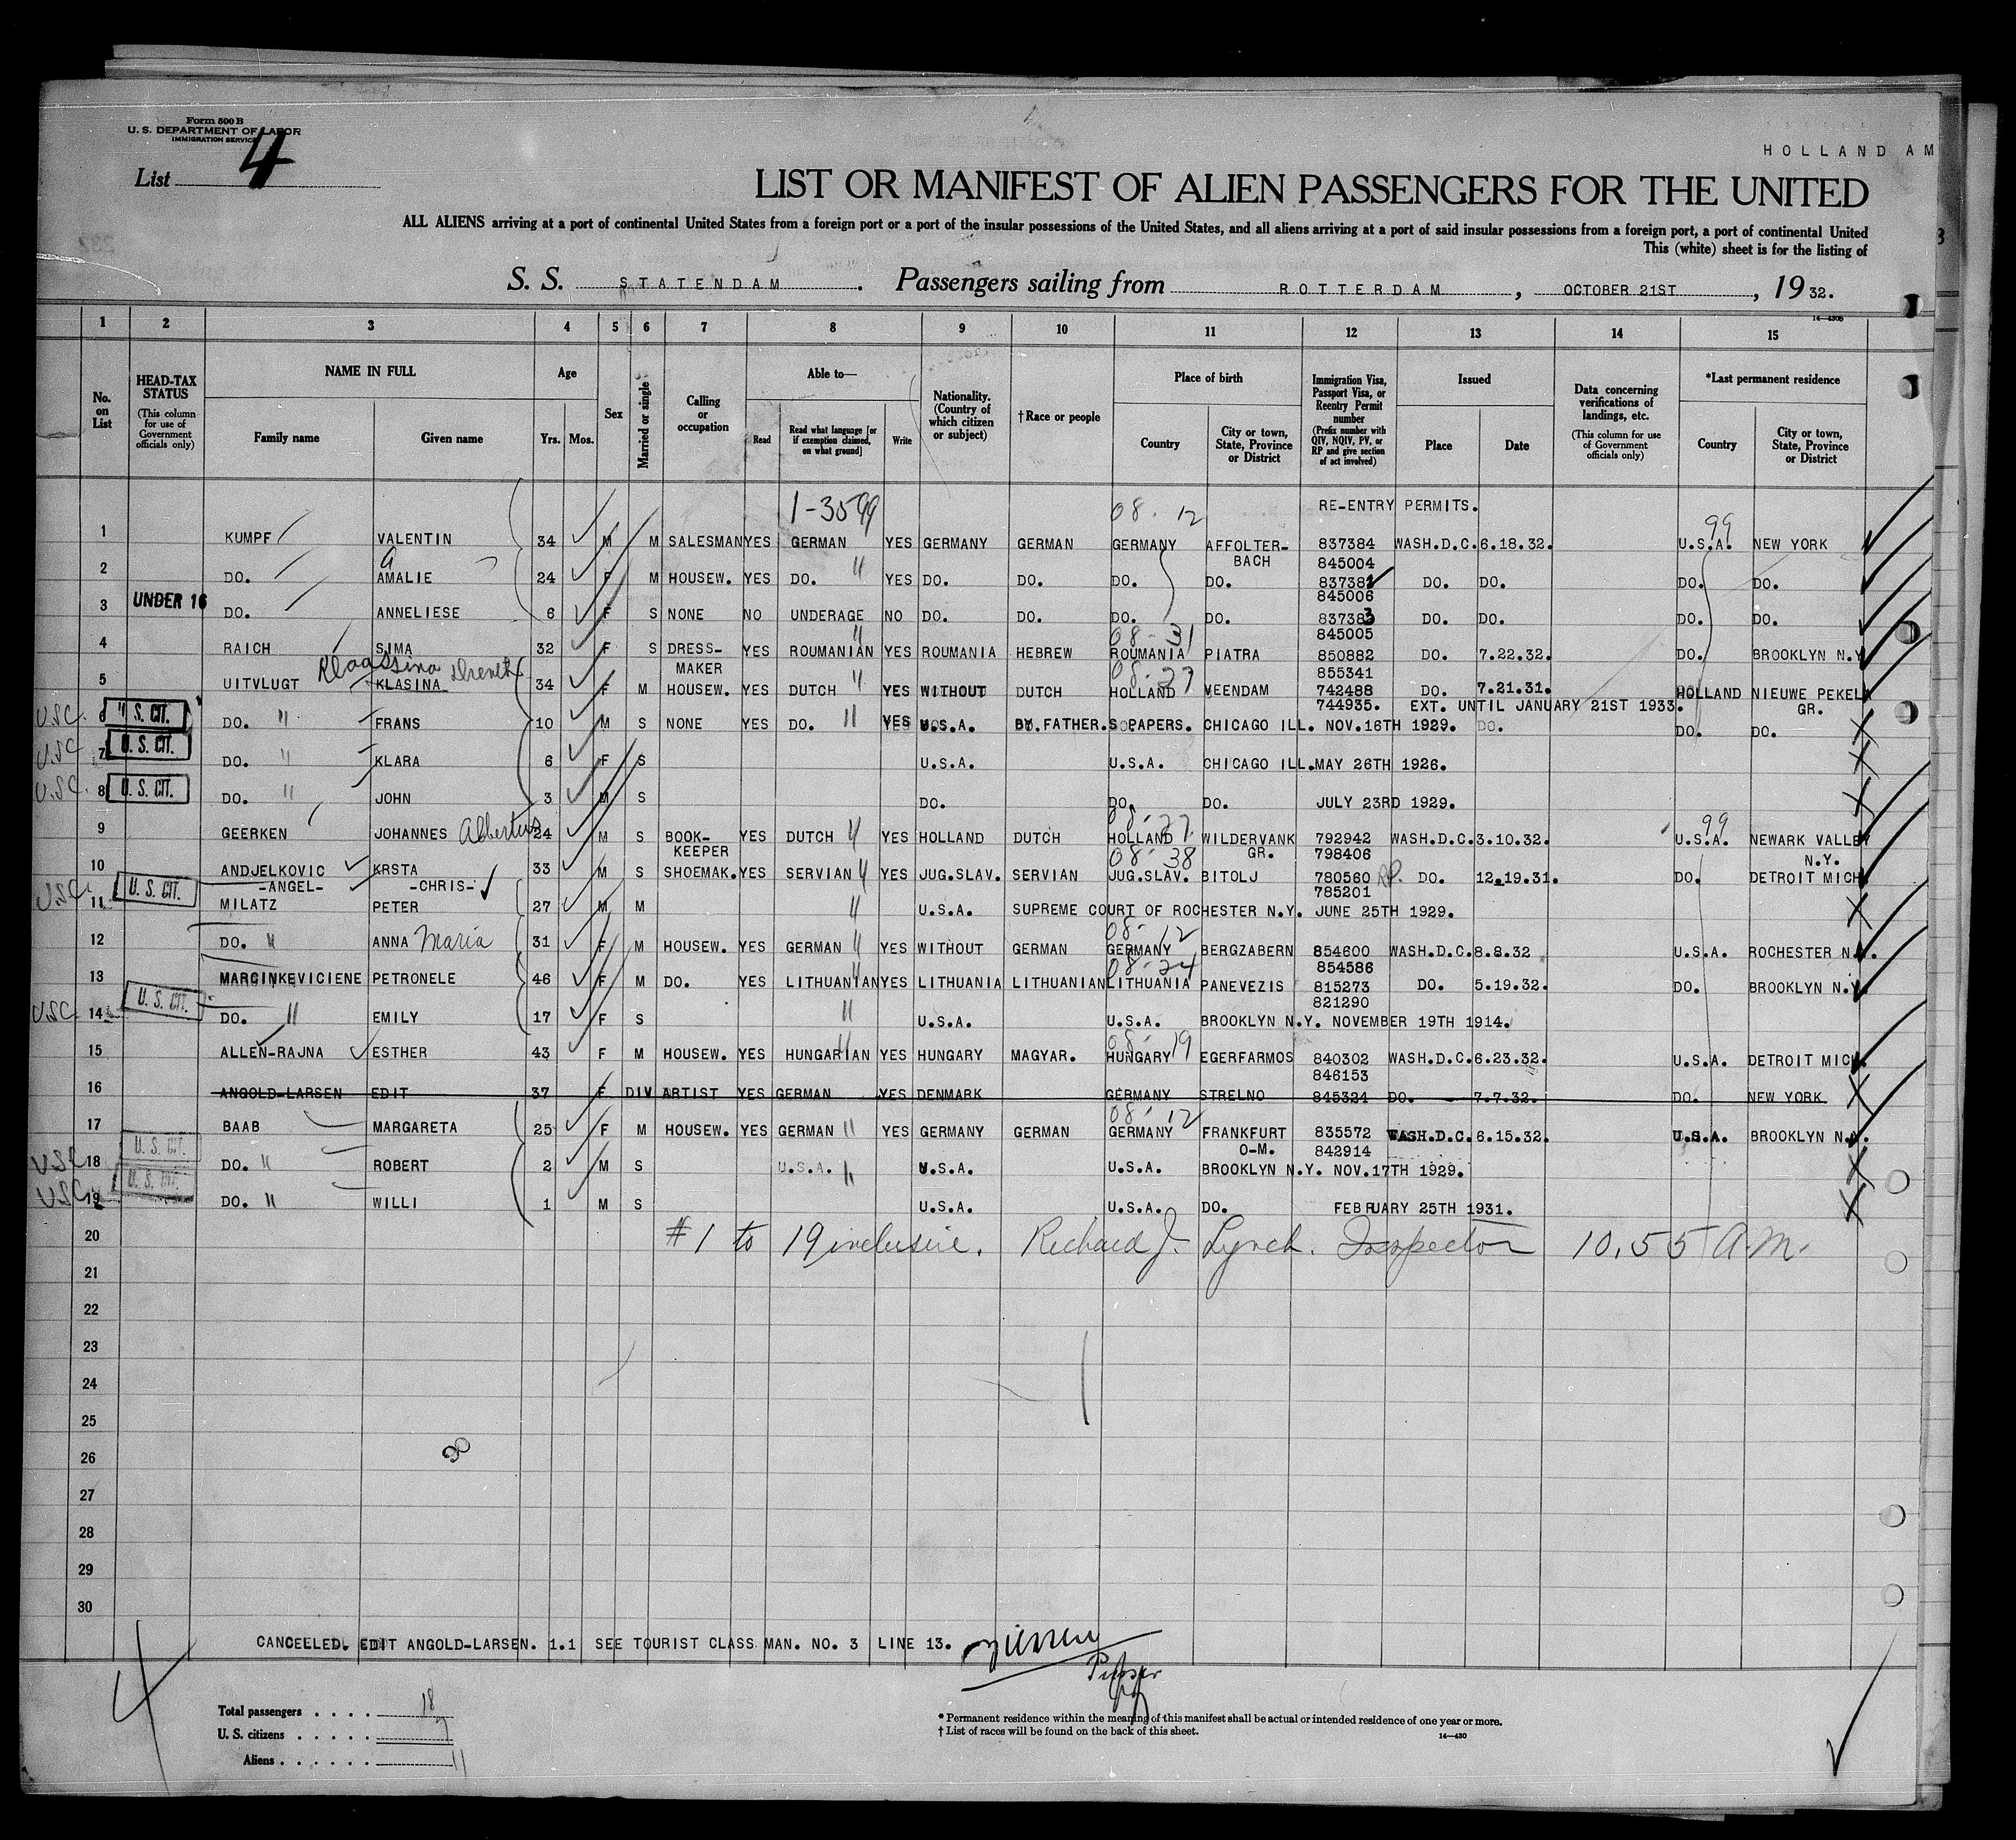 Form 500 B
U. S. DEPARTMENT OF LABOR
IMMIGRATION SERVICE
List 4
HOLLAND AM
LIST OR MANIFEST OF ALIEN PASSENGERS FOR THE UNITED
ALL ALIENS arriving at a port of continental United States from a foreign port or a port of the insular possessions of the United States, and all aliens arriving at a port of said insular possessions from a foreign port, a port of continental United
This (white) sheet is for the listing of
S. S. STATENDAM. Passengers sailing from ROTTERDAM, OCTOBER 21ST, 1932.
14—430B
1 2 3 4 5 6 7 8 9 10 11 12 13 14 15
No. on List
HEAD-TAX STATUS
(This column for use of Government officials only)
NAME IN FULL
Family name
Given name
Age
Yrs. Mos.
Sex
Married or single
Calling or occupation
Able to—
Read
Read what language [or if exemption claimed, on what ground]
Write
Nationality. (Country of which citizen or subject)
†Race or people
Place of birth
Country
City or town, State, Province or District
Immigration Visa, Passport Visa, or Reentry Permit number
(Prefix number with QIV, NQIV, PV, or RP and give section of act involved)
Issued
Place
Date
Data concerning verifications of landings, etc.
(This column for use of Government officials only)
*Last permanent residence
Country
City or town, State, Province or District
1-3599 08-12 RE-ENTRY PERMITS. 99
1 KUMPF VALENTIN 34 M M SALESMAN YES GERMAN YES GERMANY GERMAN GERMANY AFFOLTER- 837384 WASH.D.C. 6.18.32. U.S.A. NEW YORK
BACH 845004
2 DO. AMALIE 24 F M HOUSEW. YES DO. " YES DO. DO. DO. DO. 837382 DO. DO. DO. DO.
845006
3 UNDER 16 DO. ANNELIESE 6 F S NONE NO UNDERAGE NO DO. DO. DO. DO. 837383 DO. DO. DO. DO.
08-31 845005
4 RAICH SIMA 32 F S DRESS- YES ROUMANIAN YES ROUMANIA HEBREW ROUMANIA PIATRA 850882 DO. 7.22.32. DO. BROOKLYN N.Y.
Klaassina Drenth MAKER 08-27 855341
5 UITVLUGT KLASINA 34 F M HOUSEW. YES DUTCH " YES WITHOUT DUTCH HOLLAND VEENDAM 742488 DO. 7.21.31. HOLLAND NIEUWE PEKELA
744935. EXT. UNTIL JANUARY 21ST 1933. GR.
USC. 6 U.S. CIT. DO. " FRANS 10 M S NONE YES DO. " YES U.S.A. BY FATHER.S PAPERS. CHICAGO ILL. NOV.16TH 1929. DO. DO. DO.
USC 7 U.S. CIT. DO. " KLARA 6 F S U.S.A. U.S.A. CHICAGO ILL. MAY 26TH 1926.
USC. 8 U.S. CIT. DO. " JOHN 3 M S DO. DO. DO. JULY 23RD 1929.
08-27 99
9 GEERKEN JOHANNES Albertus 24 M S BOOK- YES DUTCH " YES HOLLAND DUTCH HOLLAND WILDERVANK 792942 WASH.D.C. 3.10.32. U.S.A. NEWARK VALLEY
KEEPER 08-38 GR. 798406 N.Y.
10 ANDJELKOVIC KRSTA 33 M S SHOEMAK. YES SERVIAN " YES JUG.SLAV. SERVIAN JUG.SLAV. BITOLJ 780560 RP. DO. 12.19.31. DO. DETROIT MICH.
-ANGEL- -CHRIS- 785201
USC. 11 U.S. CIT. MILATZ PETER 27 M M " U.S.A. SUPREME COURT OF ROCHESTER N.Y. JUNE 25TH 1929.
08-12
12 DO. " ANNA Maria 31 F M HOUSEW. YES GERMAN " YES WITHOUT GERMAN GERMANY BERGZABERN 854600 WASH.D.C. 8.8.32 U.S.A. ROCHESTER N.Y.
08-24 854586
13 MARCINKEVICIENE PETRONELE 46 F M DO. YES LITHUANIAN YES LITHUANIA LITHUANIAN LITHUANIA PANEVEZIS 815273 DO. 5.19.32. DO. BROOKLYN N.Y.
821290
USC. 14 U.S. CIT. DO. " EMILY 17 F S " U.S.A. U.S.A. BROOKLYN N.Y. NOVEMBER 19TH 1914.
08-19
15 ALLEN-RAJNA ESTHER 43 F M HOUSEW. YES HUNGARIAN YES HUNGARY MAGYAR. HUNGARY EGERFARMOS 840302 WASH.D.C. 6.23.32. U.S.A. DETROIT MICH.
846153
16 ANGOLD-LARSEN EDIT 37 F DIV ARTIST YES GERMAN YES DENMARK GERMANY STRELNO 845324 DO. 7.7.32. DO. NEW YORK
08-12
17 BAAB MARGARETA 25 F M HOUSEW. YES GERMAN " YES GERMANY GERMAN GERMANY FRANKFURT 835572 WASH.D.C. 6.15.32. U.S.A. BROOKLYN N.Y.
O-M. 842914
USC 18 U.S. CIT. DO. " ROBERT 2 M S U.S.A. " U.S.A. U.S.A. BROOKLYN N.Y. NOV.17TH 1929.
USC 19 U.S. CIT. DO. " WILLI 1 M S U.S.A. U.S.A. DO. FEBRUARY 25TH 1931.
20 #1 to 19 inclusive. Richard J. Lynch. Inspector 10.55 A.M.
21
22
23
24
25
26
27
28
29
30
CANCELLED. EDIT ANGOLD-LARSEN. 1.1 SEE TOURIST CLASS MAN. NO. 3 LINE 13.
Purser
4
Total passengers . . . . 18
U. S. citizens . . . . . 7
Aliens . . . . . . 11
* Permanent residence within the meaning of this manifest shall be actual or intended residence of one year or more.
† List of races will be found on the back of this sheet.
14—430